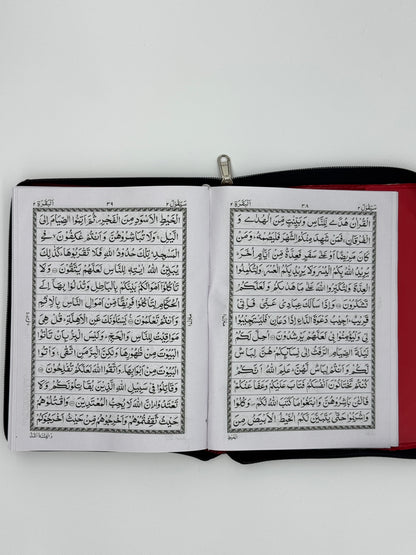 سَيَقُوْلُ ٢ ٣٨ اَلْبَقَرَة ٢
الْقُرْاٰنُ هُدًى لِّلنَّاسِ وَبَيِّنٰتٍ مِّنَ الْهُدٰى وَ
الْفُرْقَانِ ۚ فَمَنْ شَهِدَ مِنْكُمُ الشَّهْرَ فَلْيَصُمْهُ ؕ وَمَنْ
كَانَ مَرِيْضًا اَوْ عَلٰى سَفَرٍ فَعِدَّةٌ مِّنْ اَيَّامٍ اُخَرَ ؕ
يُرِيْدُ اللّٰهُ بِكُمُ الْيُسْرَ وَلَا يُرِيْدُ بِكُمُ الْعُسْرَ ؗ وَلِتُكْمِلُوا
الْعِدَّةَ وَلِتُكَبِّرُوا اللّٰهَ عَلٰى مَا هَدٰىكُمْ وَلَعَلَّكُمْ
تَشْكُرُوْنَ ۝ وَاِذَا سَاَلَكَ عِبَادِيْ عَنِّيْ فَاِنِّيْ
قَرِيْبٌ ؕ اُجِيْبُ دَعْوَةَ الدَّاعِ اِذَا دَعَانِ ۙ فَلْيَسْتَجِيْبُوْا
لِيْ وَلْيُؤْمِنُوْا بِيْ لَعَلَّهُمْ يَرْشُدُوْنَ ۝ اُحِلَّ لَكُمْ
لَيْلَةَ الصِّيَامِ الرَّفَثُ اِلٰى نِسَآئِكُمْ ؕ هُنَّ لِبَاسٌ
لَّكُمْ وَاَنْتُمْ لِبَاسٌ لَّهُنَّ ؕ عَلِمَ اللّٰهُ اَنَّكُمْ
كُنْتُمْ تَخْتَانُوْنَ اَنْفُسَكُمْ فَتَابَ عَلَيْكُمْ وَعَفَا عَنْكُمْ ۚ
فَالْـٰٔنَ بَاشِرُوْهُنَّ وَابْتَغُوْا مَا كَتَبَ اللّٰهُ لَكُمْ ۪ وَكُلُوْا
وَاشْرَبُوْا حَتّٰى يَتَبَيَّنَ لَكُمُ الْخَيْطُ الْاَبْيَضُ مِنَ
الخيط
سَيَقُوْلُ ٢ ٣٩ اَلْبَقَرَة ٢
الْخَيْطِ الْاَسْوَدِ مِنَ الْفَجْرِ ۪ ثُمَّ اَتِمُّوا الصِّيَامَ اِلَى
الَّيْلِ ۚ وَلَا تُبَاشِرُوْهُنَّ وَاَنْتُمْ عٰكِفُوْنَ ۙ فِي
الْمَسٰجِدِ ؕ تِلْكَ حُدُوْدُ اللّٰهِ فَلَا تَقْرَبُوْهَا ؕ كَذٰلِكَ
يُبَيِّنُ اللّٰهُ اٰيٰتِهٖ لِلنَّاسِ لَعَلَّهُمْ يَتَّقُوْنَ ۝ وَلَا
تَاْكُلُوْٓا اَمْوَالَكُمْ بَيْنَكُمْ بِالْبَاطِلِ وَتُدْلُوْا بِهَآ اِلَى
الْحُكَّامِ لِتَاْكُلُوْا فَرِيْقًا مِّنْ اَمْوَالِ النَّاسِ بِالْاِثْمِ
وَاَنْتُمْ تَعْلَمُوْنَ ۝ يَسْـَٔلُوْنَكَ عَنِ الْاَهِلَّةِ ؕ قُلْ هِيَ
مَوَاقِيْتُ لِلنَّاسِ وَالْحَجِّ ؕ وَلَيْسَ الْبِرُّ بِاَنْ تَاْتُوا
الْبُيُوْتَ مِنْ ظُهُوْرِهَا وَلٰكِنَّ الْبِرَّ مَنِ اتَّقٰى ۚ وَاْتُوا
الْبُيُوْتَ مِنْ اَبْوَابِهَا ۪ وَاتَّقُوا اللّٰهَ لَعَلَّكُمْ تُفْلِحُوْنَ ۝
وَقَاتِلُوْا فِيْ سَبِيْلِ اللّٰهِ الَّذِيْنَ يُقَاتِلُوْنَكُمْ وَلَا
تَعْتَدُوْا ؕ اِنَّ اللّٰهَ لَا يُحِبُّ الْمُعْتَدِيْنَ ۝ وَاقْتُلُوْهُمْ
حَيْثُ ثَقِفْتُمُوْهُمْ وَاَخْرِجُوْهُمْ مِّنْ حَيْثُ اَخْرَجُوْكُمْ